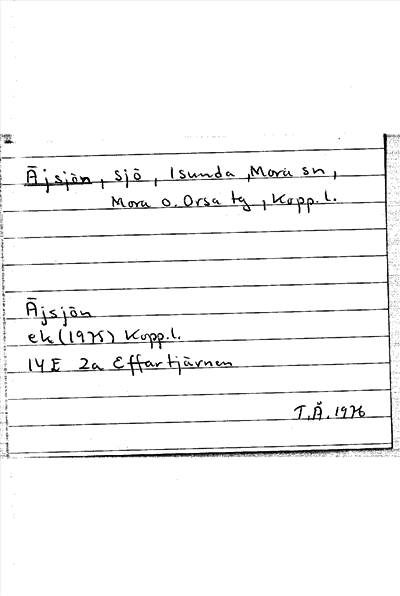 Äjsjön, sjö, Isunda, Mora sn,
Mora o. Orsa tg, Kopp.l.
Äjsjön
ek (1975) Kopp.l.
14E 2a Effartjärnen
T.Å. 1976